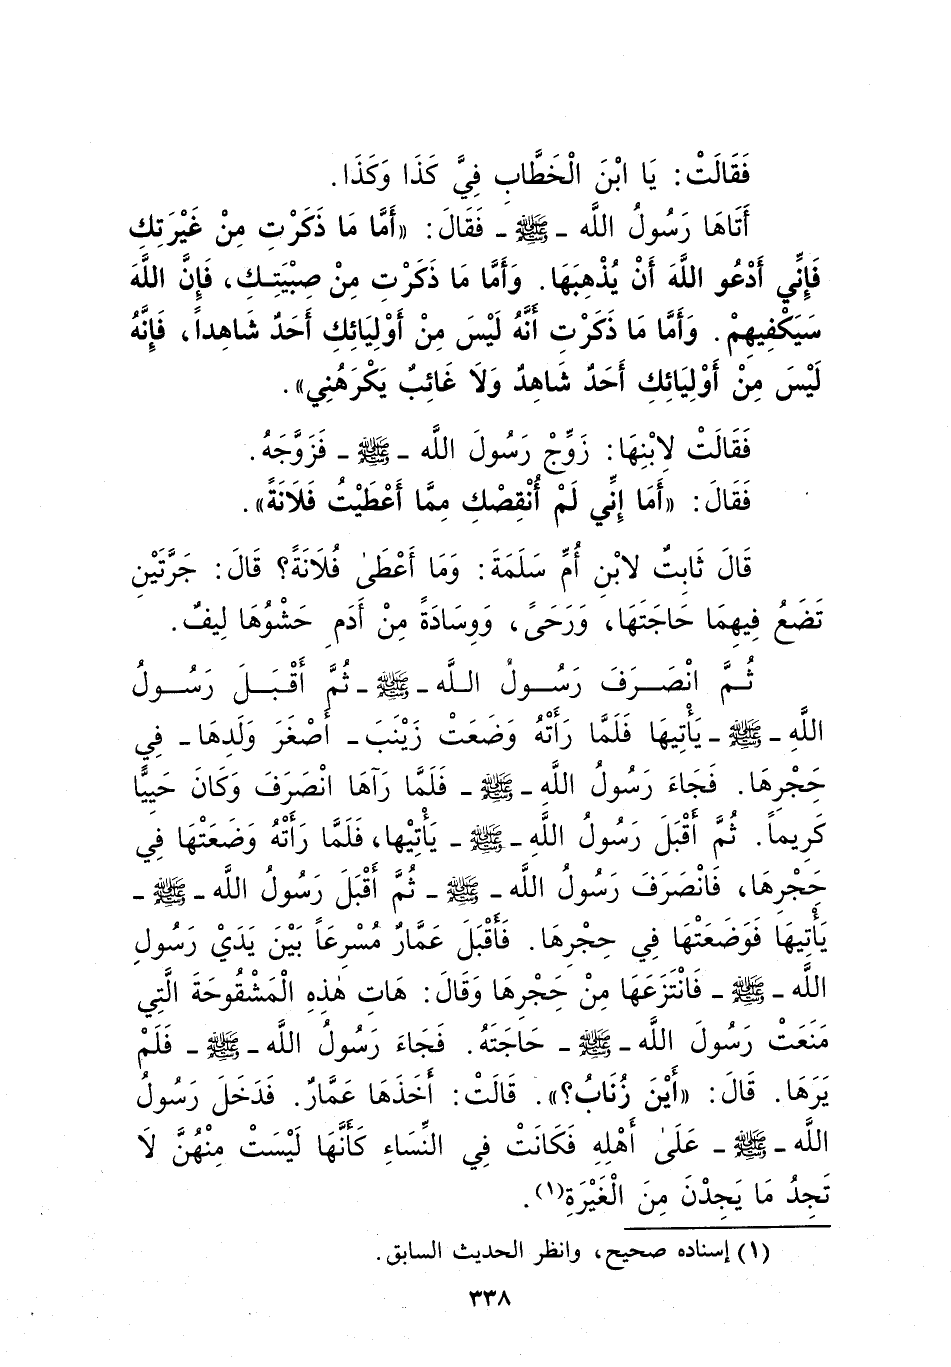 فَقَالَتْ: يَا ابْنَ الْخَطَّابِ فِيَّ كَذَا وَكَذَا.
أَتَاهَا رَسُولُ اللَّه ـ ﷺ ـ فَقَالَ: «أَمَّا مَا ذَكَرْتِ مِنْ غَيْرَتِكِ
فَإِنِّي أَدْعُو اللَّهَ أَنْ يُذْهِبَهَا. وَأَمَّا مَا ذَكَرْتِ مِنْ صِبْيَتِـكِ، فَإِنَّ اللَّهَ
سَيَكْفِيهِمْ. وَأَمَّا مَا ذَكَرْتِ أَنَّهُ لَيْسَ مِنْ أَوْلِيَائِكِ أَحَدٌ شَاهِداً، فَإِنَّهُ
لَيْسَ مِنْ أَوْلِيَائِكِ أَحَدٌ شَاهِدٌ وَلَا غَائِبٌ يَكْرَهُنِي».
فَقَالَتْ لِابْنِهَا: زَوِّجْ رَسُولَ اللَّه ـ ﷺ ـ فَزَوَّجَهُ.
فَقَالَ: «أَمَا إِنِّي لَمْ أُنْقِصْكِ مِمَّا أَعْطَيْتُ فَلَانَةً».
قَالَ ثَابِتٌ لابْنِ أُمِّ سَلَمَةَ: وَمَا أَعْطَىٰ فُلَانَةً؟ قَالَ: جَرَّتَيْنِ
تَضَعُ فِيهِمَا حَاجَتَهَا، وَرَحَىً، وَوِسَادَةً مِنْ أَدَمٍ حَشْوُهَا لِيفٌ.
ثُـمَّ انْصَـرَفَ رَسُـولُ الـلَّه ـ ﷺ ـ ثُمَّ أَقْبَـلَ رَسُـولُ
اللَّهِ ـ ﷺ ـ يَأْتِيهَا فَلَمَّا رَأَتْهُ وَضَعَتْ زَيْنَبَ ـ أَصْغَرَ وَلَدِهَا ـ فِي
حَجْرِهَا. فَجَاءَ رَسُولُ اللَّهِ ـ ﷺ ـ فَلَمَّا رَآهَا انْصَرَفَ وَكَانَ حَيِيًّا
كَرِيماً. ثُمَّ أَقْبَلَ رَسُولُ اللَّهِ ـ ﷺ ـ يَأْتِيْها، فَلَمَّا رَأَتْهُ وَضَعَتْهَا فِي
حَجْرِهَا، فَانْصَرَفَ رَسُولُ اللَّه ـ ﷺ ـ ثُمَّ أَقْبَلَ رَسُولُ اللَّه ـ ﷺ ـ
يَأْتِيهَا فَوَضَعَتْهَا فِي حِجْرِهَا. فَأَقْبَلَ عَمَّارٌ مُسْرِعَاً بَيْنَ يَدَيْ رَسُولِ
اللَّه ـ ﷺ ـ فَانْتَزَعَهَا مِنْ حَجْرِهَا وَقَالَ: هَاتِ هٰذِهِ الْمَشْقُوحَةَ الَّتِي
مَنَعَتْ رَسُولَ اللَّه ـ ﷺ ـ حَاجَتَهُ. فَجَاءَ رَسُولُ اللَّه ـ ﷺ ـ فَلَمْ
يَرَهَا. قَالَ: «أَيْنَ زُنَابُ؟». قَالَتْ: أَخَذَهَا عَمَّارٌ. فَدَخَلَ رَسُولُ
اللَّه ـ ﷺ ـ عَلَىٰ أَهْلِهِ فَكَانَتْ فِي النِّسَاءِ كَأَنَّهَا لَيْسَتْ مِنْهُنَّ لَا
تَجِدُ مَا يَجِدْنَ مِنَ الْغَيْرَةِ(١).
(١) إسناده صحيح، وانظر الحديث السابق.
٣٣٨